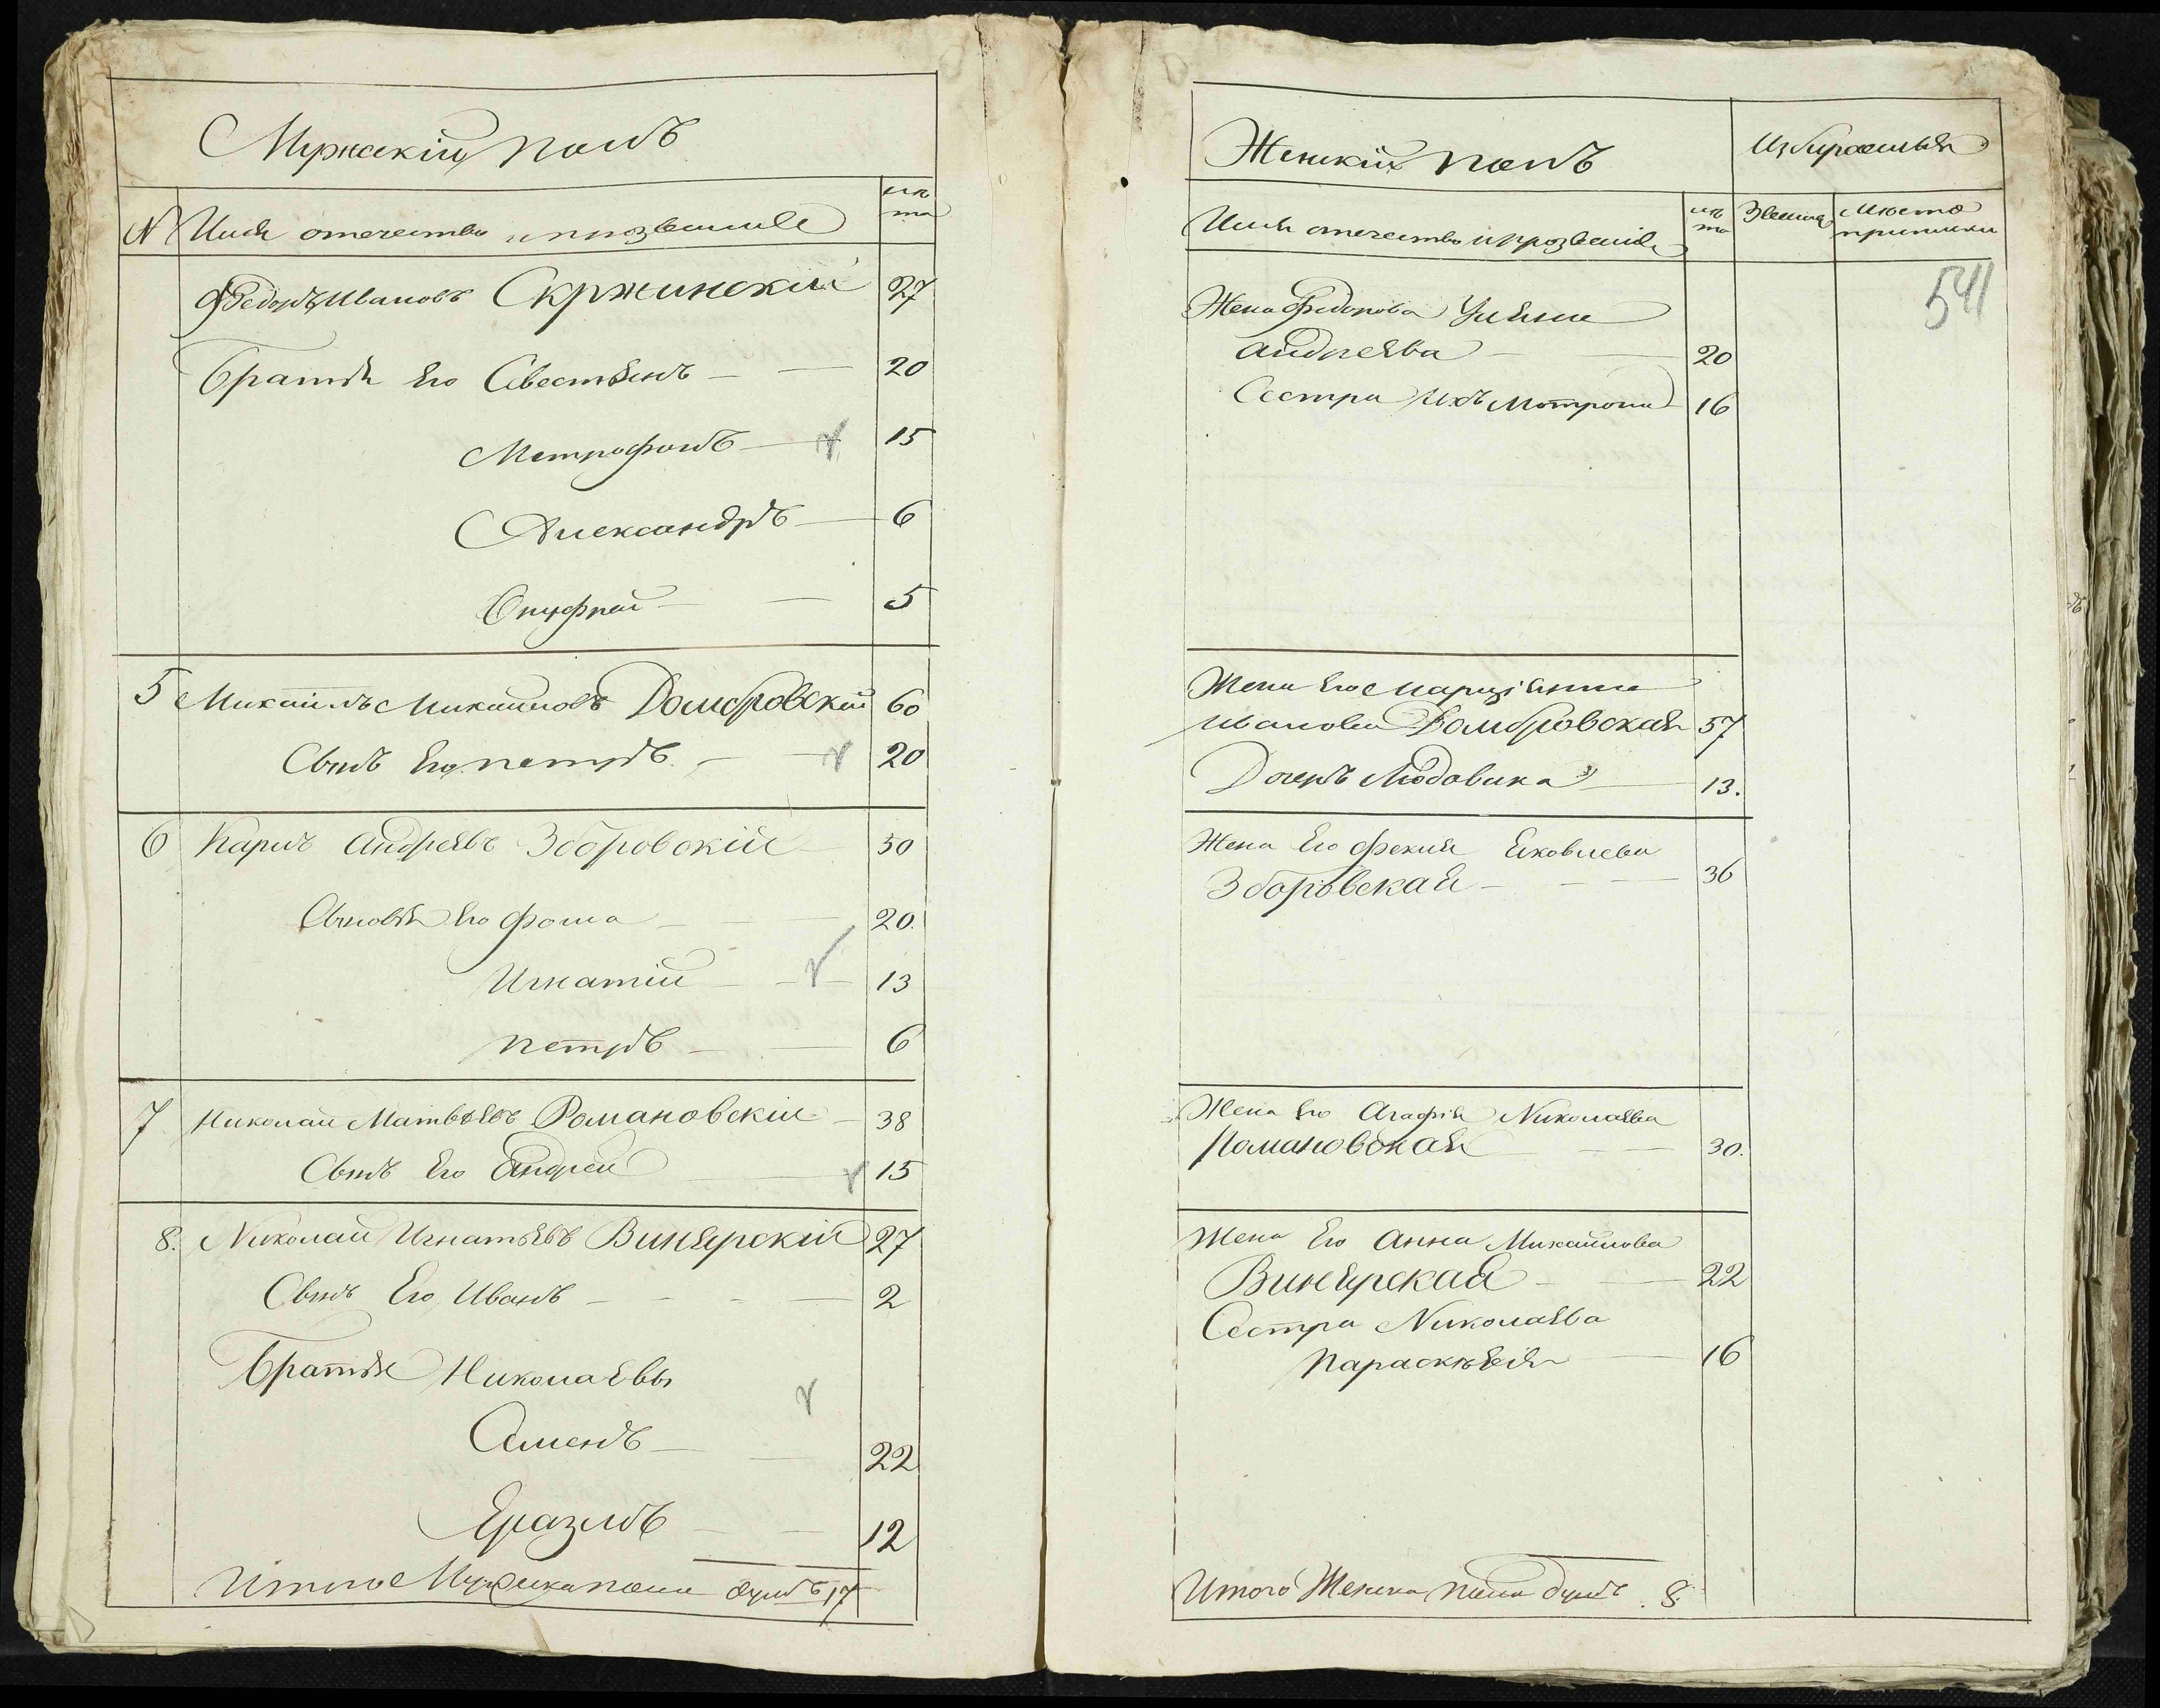 Мужскій полъ
N Имя отечество и прозвание
лѣта
Федоръ Ивановъ Скржинскій 27
братья Его Севестьянъ 20
Метрофанъ 15
Александръ 6
Онуфрей 5
5 Михаилъ Михаиловъ Домбровскій 60
Сынъ Его петръ 20
6 Карлъ Андреявъ Зборовскій 50
Сыновья Его фома 20.
Игнатій 13
петръ 6
7 Николаи Матвѣявъ Романовскіи 38
Сынъ Его Андреи 15
8. Николаи Игнатьявъ Винярскій 27
Сынъ Его Иванъ 2
братья Николаявы
Семенъ 22
Еразмъ 12
Итого Мужска пола душъ 17
Женскій полъ
Имя отечество и прозвание
лѣта
Звания
Мѣсто
приписки
541
Жена федорова Ульяна
андреява 20
Сестра ихъ Мотрона 16
Жена Его Марціянна
Иванова Домбровская 57
Дочерь Людовика 13.
Жена Его фекля Яковлева
Зборовская 36
Жена Его Агафія Николаява
Романовская 30.
Жена Его Анна Михаилова
Винярская 22
Сестра Николаява
Параскѣвія 16
Итого Женска пола душъ 8.